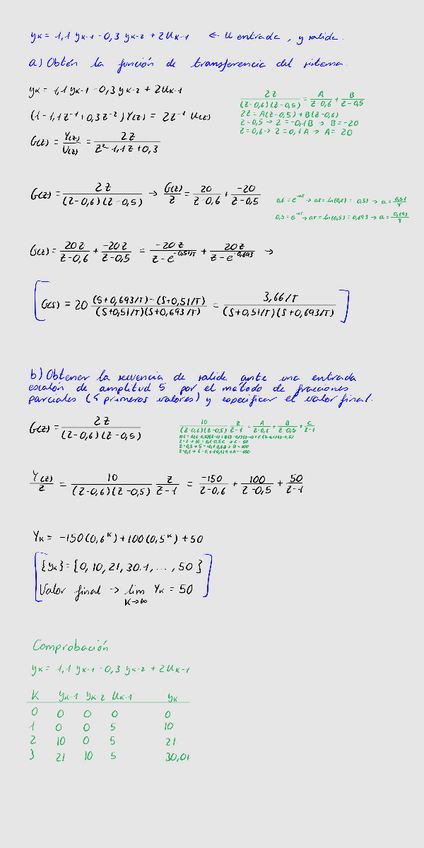 yk = 1,1 yk-1 - 0,3 yk-2 + 2uk-1 ← u entrada, y salida.
a) Obtén la función de transferencia del sistema
yk = 1,1 yk-1 - 0,3 yk-2 + 2uk-1
(1 - 1,1z⁻¹ + 0,3z⁻²) Y(z) = 2z⁻¹ U(z)
G(z) = Y(z)/U(z) = 2z/(z² - 1,1z + 0,3)
2z/((z-0,6)(z-0,5)) = A/(z-0,6) + B/(z-0,5)
2z = A(z-0,5) + B(z-0,6)
G(z) = 2z/((z-0,6)(z-0,5)) → G(z)/z = 20/(z-0,6) + -20/(z-0,5)
G(z) = 20z/(z-0,6) + -20z/(z-0,5) = -20z/(z-e^-0,51/T) + 20z/(z-e^-0,693) →
G(s) = 20 ((s+0,693/T)-(s+0,51/T))/((s+0,51/T)(s+0,693/T)) = 3,66/T/((s+0,51/T)(s+0,693/T))
b) Obtener la secuencia de salida ante una entrada
escalón de amplitud 5 por el método de fracciones
parciales (4 primeros valores) y especificar el valor final.
G(z) = 2z/((z-0,6)(z-0,5))
10/((z-0,6)(z-0,5)) z/(z-1) = A/(z-0,6) + B/(z-0,5) + C/(z-1)
Y(z)/z = 10/((z-0,6)(z-0,5)) z/(z-1) = -150/(z-0,6) + 100/(z-0,5) + 50/(z-1)
Yk = -150(0,6^k) + 100(0,5^k) + 50
{yk} = {0, 10, 21, 30.1, ..., 50}
Valor final → lim k→∞ Yk = 50
Comprobación
yk = 1,1 yk-1 - 0,3 yk-2 + 2uk-1
K yk-1 yk-2 uk-1 yk
0 0 0 0 0
1 0 0 5 10
2 10 0 5 21
3 21 10 5 30,01